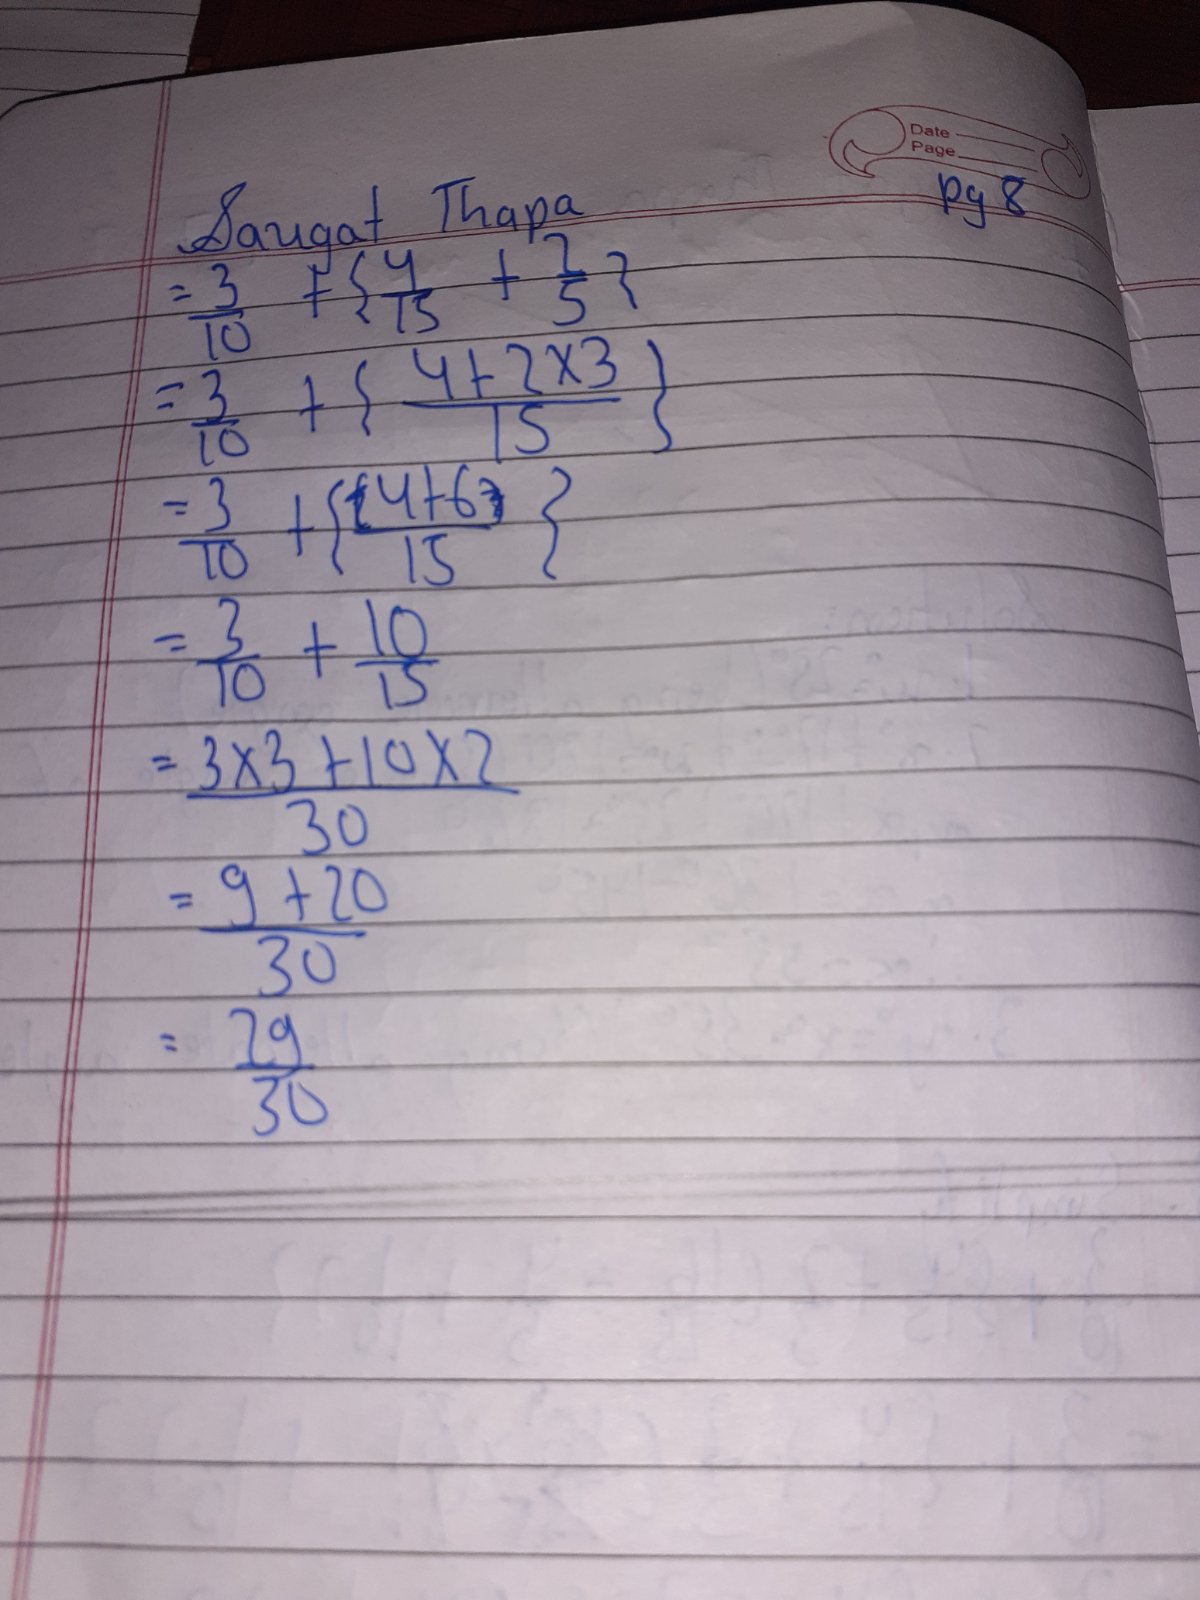 Date
Page
pg 8
Saugat Thapa
= 3/10 + {4/15 + 2/5}
= 3/10 + { 4+2×3/15 }
= 3/10 + {(4+6)/15 }
= 3/10 + 10/15
= 3×3+10×2/30
= 9+20/30
= 29/30